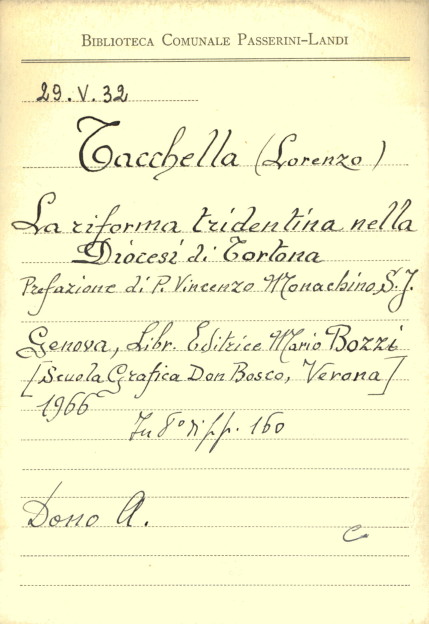 BIBLIOTECA COMUNALE PASSERINI-LANDI
29.V.32
Tacchella (Lorenzo)
La riforma tridentina nella
Diocesi di Tortona
Prefazione di P. Vincenzo Monachino, S.J.
Genova, Libr. Editrice Mario Bozzi
[Scuola Grafica Don Bosco, Verona]
1966
In 8° di pp. 160
Dono A.
C